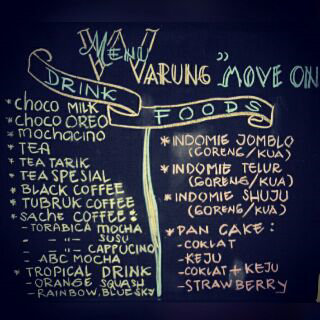 Menu
WARUNG "MOVE ON
DRINK
* CHOCO MILK
* CHOCO OREO
* MOCHACINO
* TEA
* TEA TARIK
* TEA SPESIAL
* BLACK COFFEE
* TUBRUK COFFEE
* SACHE COFFEE :
- TORABICA MOCHA
- " - SUSU
- " - CAPPUCINO
- ABC MOCHA
* TROPICAL DRINK
- ORANGE SQUASH
- RAINBOW, BLUE SKY
FOODS
* INDOMIE JOMBLO
(GORENG/KUA)
* INDOMIE TELUR
(GORENG/KUA)
* INDOMIE SHUJU
(GORENG/KUA)
* PAN CAKE :
- COKLAT
- KEJU
- COKLAT + KEJU
- STRAWBERRY